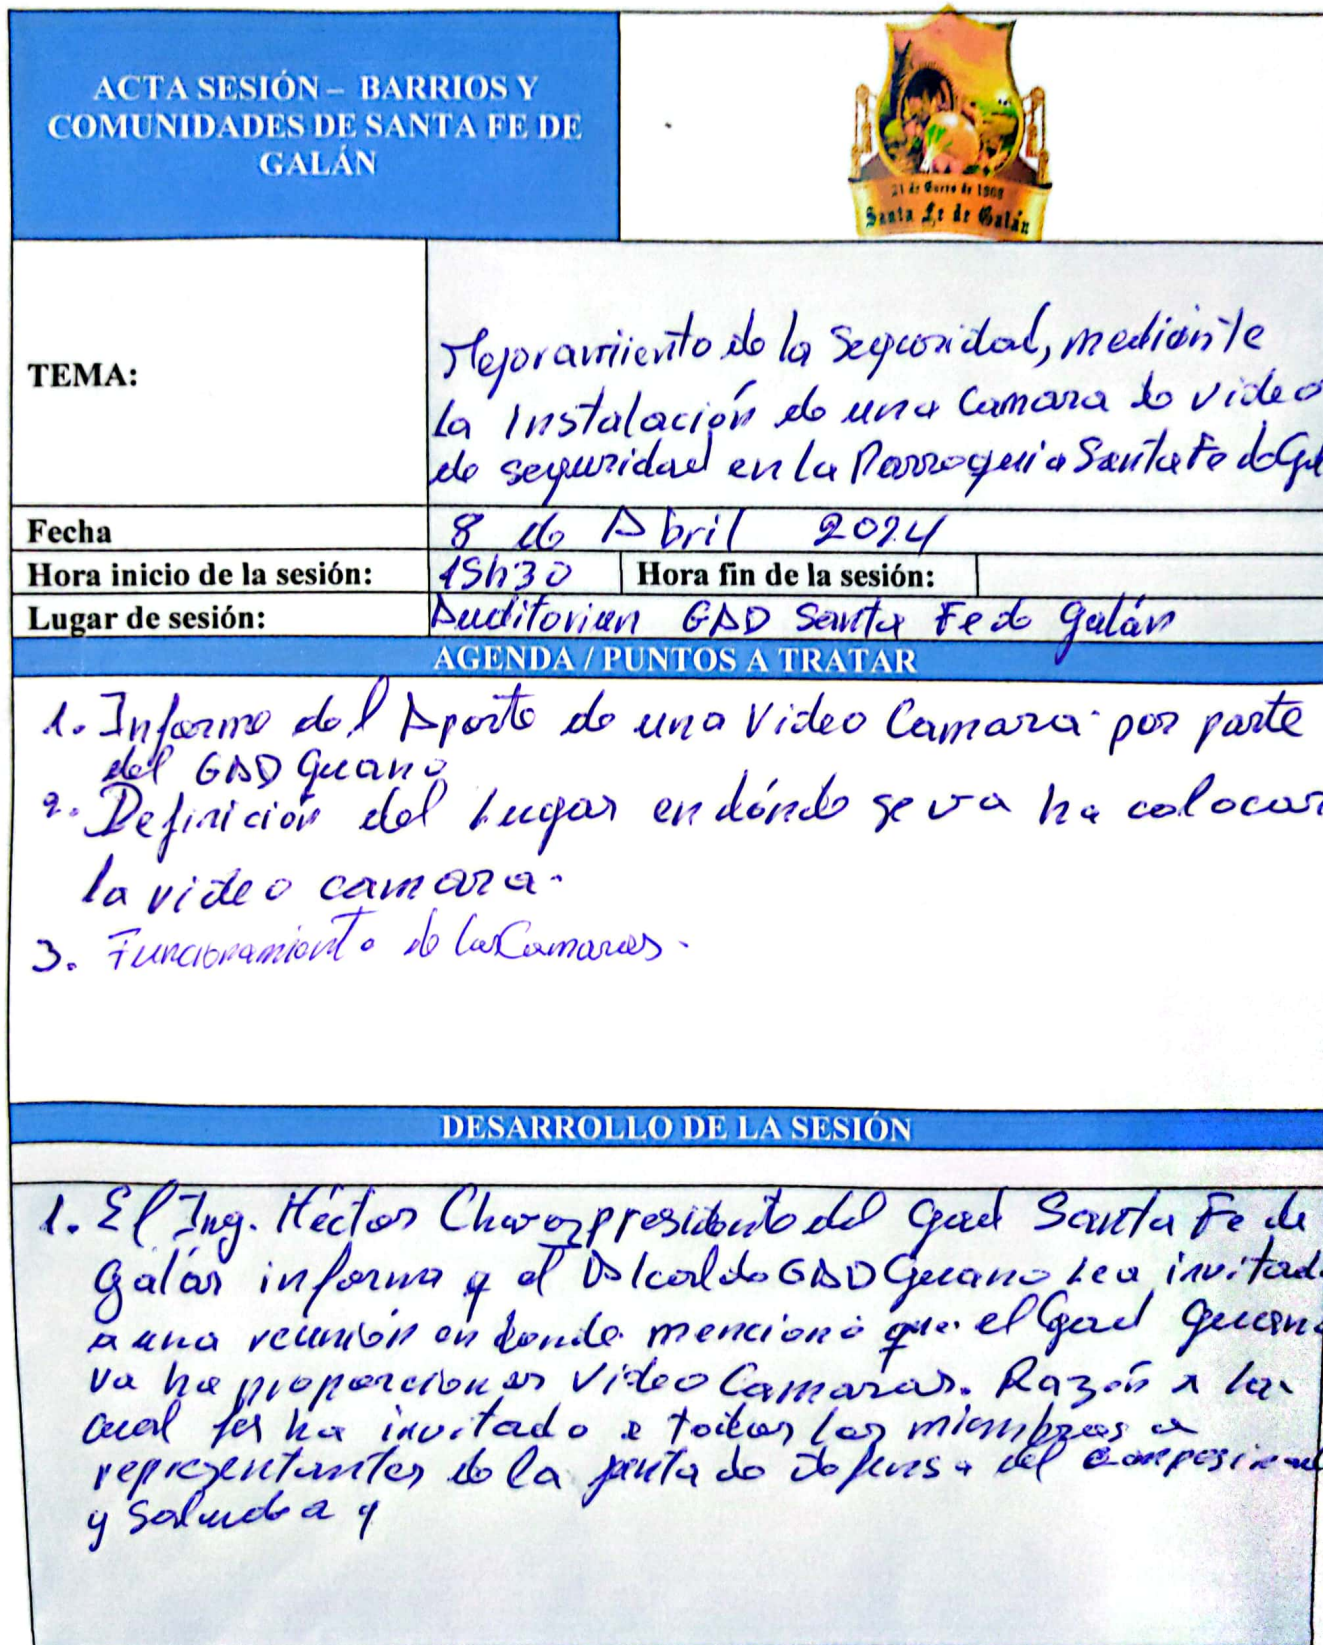 ACTA SESIÓN – BARRIOS Y
COMUNIDADES DE SANTA FE DE
GALÁN
21 de Enero de 1908
Santa Fe de Galán
TEMA:
Mejoramiento de la Seguridad, mediante
la Instalación de una Camara de video
de seguridad en la Parroquia Santa Fe de Gal
Fecha
8 de Abril 2024
Hora inicio de la sesión:
15h30
Hora fin de la sesión:
Lugar de sesión:
Auditorium GAD Santa Fe de Galán
AGENDA / PUNTOS A TRATAR
1. Informe del Aporte de una Video Camara por parte
del GAD Guano
2. Definición del Lugar en dónde se va ha colocar
la video camara.
3. Funcionamiento de las Camaras.
DESARROLLO DE LA SESIÓN
1. El Ing. Héctor presidente del Gad Santa Fe de
Galán informa q el Alcalde GAD Guano invitad
a una reunión en donde mencionó que el Gad Guano
va ha proporcionar Video Camaras. Razón a la
cual ha invitado a todos los miembros
representantes de la junta de defensa del
y Saluda a q